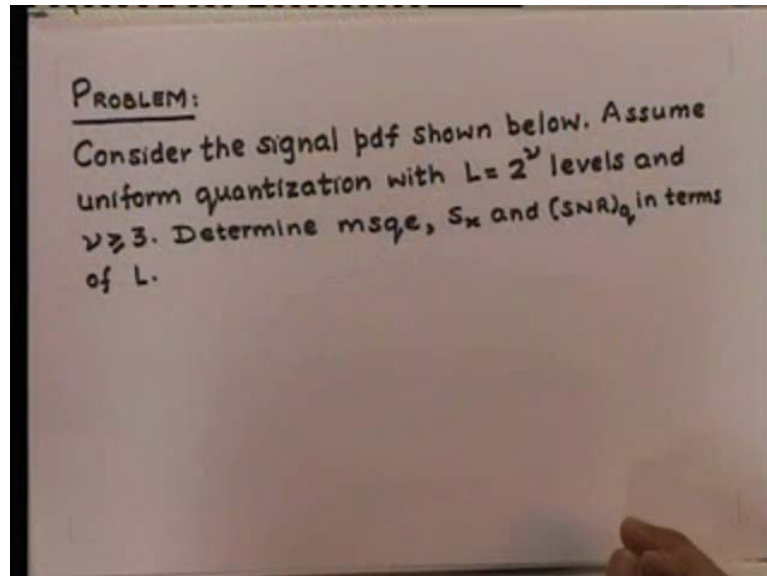 PROBLEM:
Consider the signal pdf shown below. Assume
uniform quantization with L= 2^ν levels and
ν≥3. Determine msqe, Sx and (SNR)q in terms
of L.